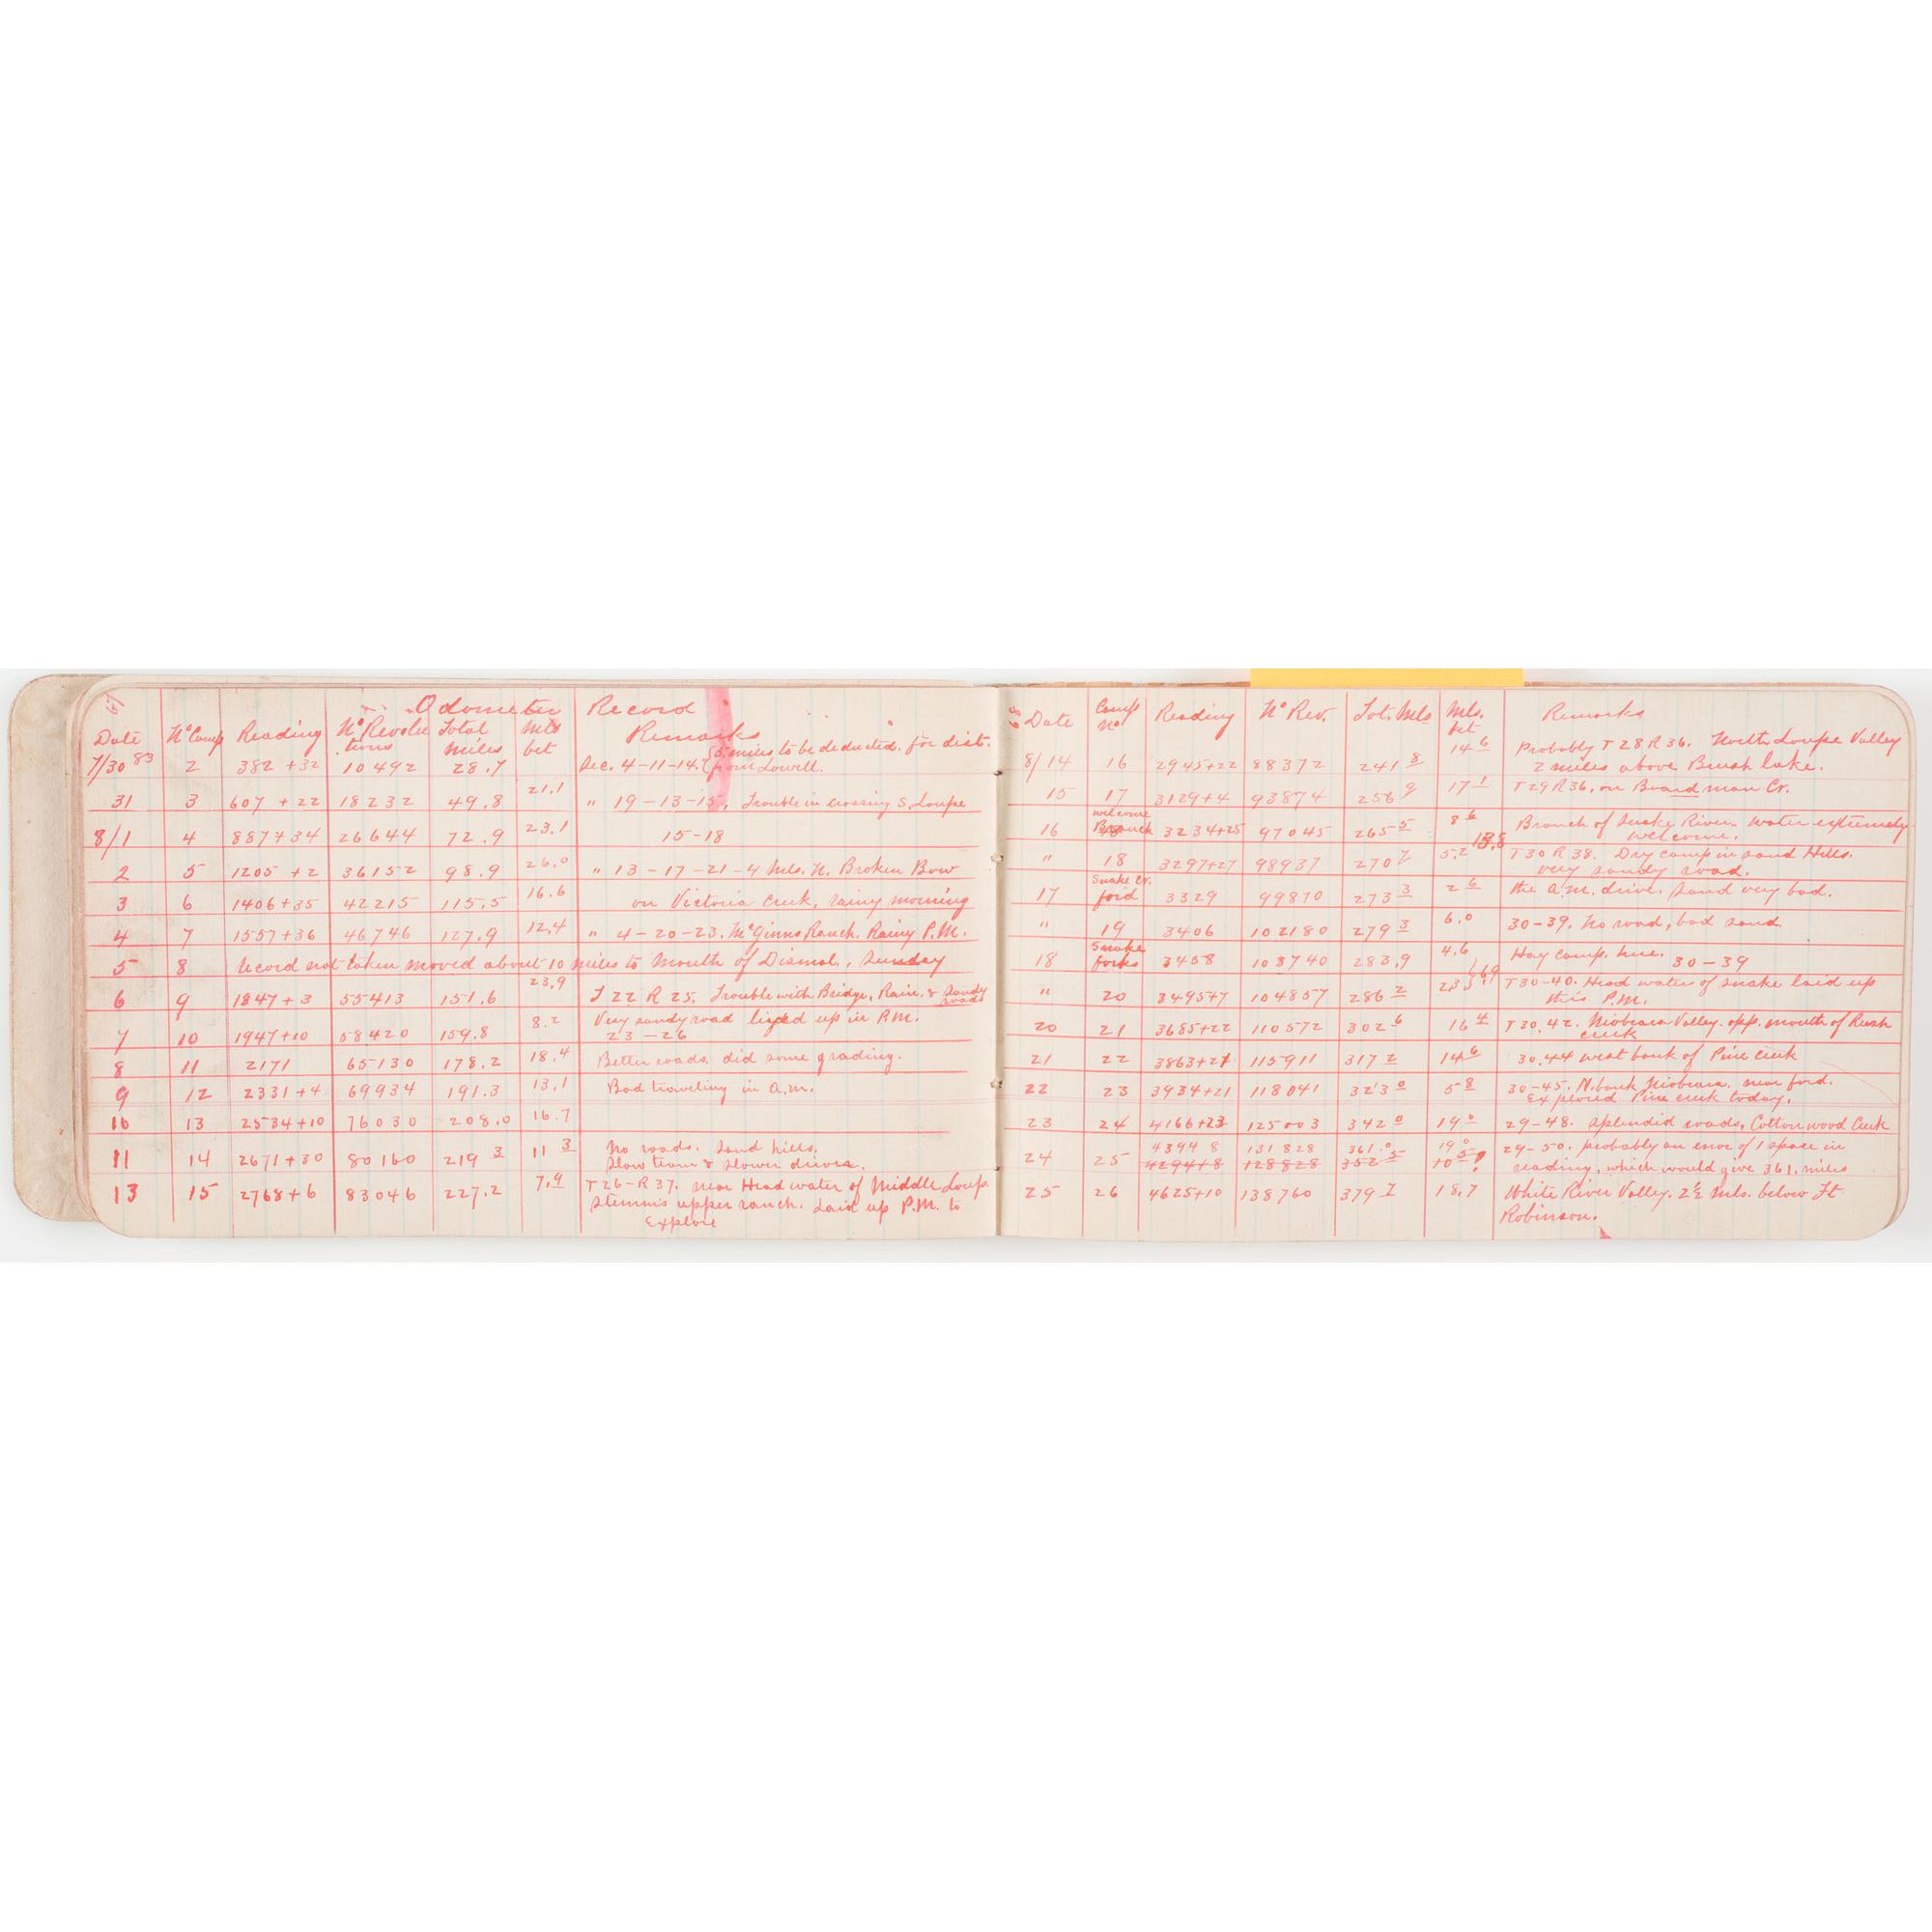 67
Odometer Record
Date Nº Camp Reading Nº Revolu tions Total miles Mls bet Remarks
7/30 83 2 382 +32 10492 28.7 Sec. 4-11-14. {5 miles to be deducted for dist. from Lowell.
31 3 607 +22 18232 49.8 21.1 " 19-13-15, Trouble in crossing S. Loupe
8/1 4 887+34 26644 72.9 23.1 15-18
2 5 1205 +2 36152 98.9 26.0 " 13-17-21-4 mls. N. Broken Bow
3 6 1406+35 42215 115.5 16.6 on Victoria Creek, rainy morning
4 7 1557+36 46746 127.9 12.4 " 4-20-23. McGinns Ranch. Rainy P.M.
5 8 Record not taken moved about 10 miles to Mouth of Dismal, Sunday
6 9 1847+3 55413 151.6 23.9 T 22 R 25. Trouble with Bridge, Rain, & sandy roads
7 10 1947+10 58420 159.8 8.2 Very sandy road up in P.M.
23-26
8 11 2171 65130 178.2 18.4 Better roads. did some grading.
9 12 2331+4 69934 191.3 13.1 Bad traveling in A.M.
10 13 2534+10 76030 208.0 16.7
11 14 2671+30 80160 219 3 11 3 No roads. Sand hills.
Slow team & slower driver.
13 15 2768+6 83046 227.2 7.9 T26-R37. near Head water of Middle Loup.
upper ranch. Laid up P.M. to
Explore
68
Date Camp Nº Reading Nº Rev. Tot. Mls Mls. bet Remarks
8/14 16 2945+22 88372 241 8 14 6 Probably T28 R36. North Loupe Valley
2 miles above Brush lake.
15 17 3129+4 93874 256 9 17 1 T29 R36, on Boardman Cr.
16 Welcome Branch 3234+25 97045 265 5 8 6 Branch of Snake River. water extremely
welcome.
" 18 3297+27 98937 270 7 5.2 13.8 T30 R38. Dry camp in sand Hills.
very sandy road.
17 Snake Cr. ford 3329 99870 273 3 2 6 the A.M. drive. sand very bad.
" 19 3406 102180 279 3 6.0 30-39. No road, bad sand
18 Snake forks 3458 103740 283.9 4.6 Hay camp. here. 30-39
" 20 3495+7 104857 286 2 2.3 6.9 T30-40. Head waters of snake laid up
this P.M.
20 21 3685+22 110572 302 6 16 4 T30.42. Niobrara Valley. opp. mouth of Rush
creek
21 22 3863+21 115911 317 2 14 6 30.44 west bank of Pine creek
22 23 3934+21 118041 323 0 5 8 30-45. N. bank Niobrara. near ford.
Explored Pine creek today.
23 24 4166+23 125003 342 0 19 0 29-48. splendid roads, Cotton wood Creek
4394 8 131828 361.0 19 0
24 25 4294+8 128828 352 5 10 5? 29-50. probably an error of 1 space in
reading, which would give 361. miles
25 26 4625+10 138760 379 7 18.7 White River Valley. 2½ mls. below Ft
Robinson.